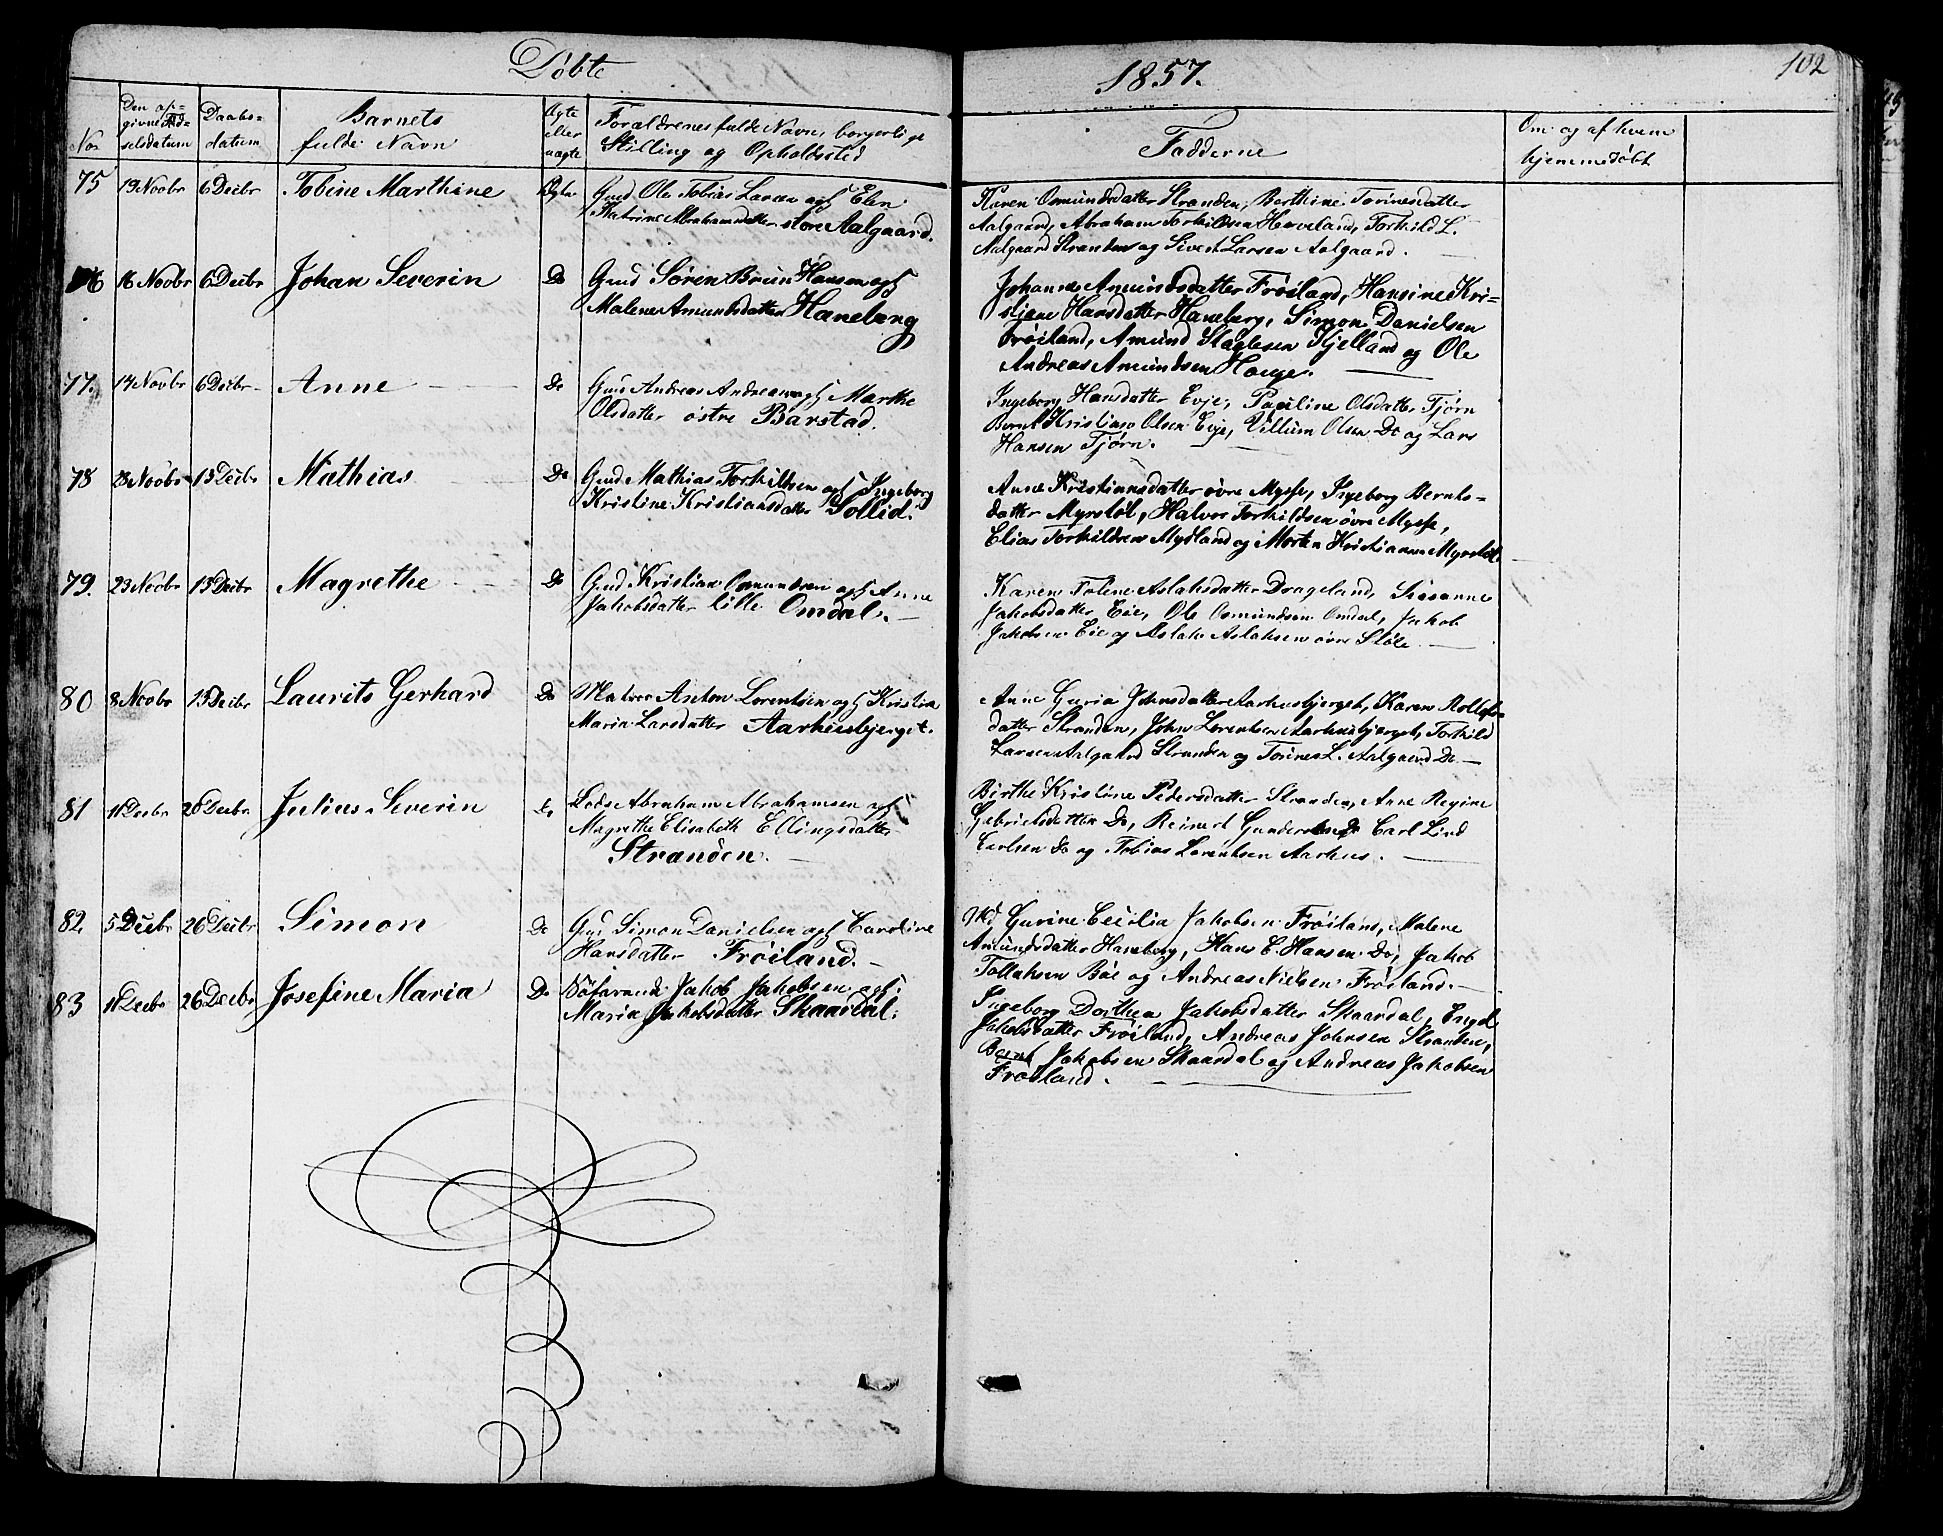 Döbte
1857.
102
No
Den op-
givne Föd-
selsdatum
Daabs-
datum
Barnets
fulde Navn
Ægte
eller
uægte
Forældrenes fulde Navn, borgerlige
Stilling og Opholdssted
Fadderne
Om og af hvem
hjemmedöbt
75 19 Novbr 6 Decbr Tobine Marthine Ægte Gmd Ole Tobias Larsen og H Elen
Katrine Abrahamsdatter store Aalgaard.
Karen Osmundsdatter Stranden, Berthine Torinesdatter
Aalgaard, Abraham Torkildsen Haveland, Torkild L.
Aalgaard Stranden og Sivert Larsen Aalgaard.
76 16 Novbr 6 Decbr Johan Severin Do Gmd Sören Bruun Hansen og H
Malene Amundsdatter Haneberg
Johanne Amundsdatter Fröiland, Hansine Kri-
stiane Hansdatter Haneberg, Simon Danielsen
Fröiland, Amund Slaglesen Kjelland og Ole
Andreas Amundsen Hauge.
77. 14 Novbr 6 Decbr Anne Do Gmd Andreas Andreasen og H Marthe
Olsdatter östre Barstad.
Ingeborg Hansdatter Evje, Pauline Olsdatter Tjörn
Bernt Kristinso Olsen Evje, Villum Olsen Do og Lars
Hansen Tjörn.
78 28 Novbr 13 Decbr Mathias Do Gmd Mathias Torkildsen og H Ingeborg
Kristine Kristiansdatter Sollid.
Anne Kristiansdatter övre Mysse, Ingeborg Bernts-
datter Myrstöl, Halvor Torkildsen övre Mysse,
Elias Torkildsen Mydland og Morten Kristiansen Myrstöl
79. 23 Novbr 13 Decbr Magrethe Do Gmd Kristian Osmundsen og H Anne
Jakobsdatter lille Omdal.
Karen Toline Aslaksdatter Drageland, Susanne
Jakobsdatter Eie, Ole Osmundsen Omdal, Jakob
Jakobsen Eie og Aslak Aslaksen övre Stöle.
80 8 Novbr 13 Decbr Laurits Gerhard Do Matros Anton Lorentsen og H Kristine
Maria Larsdatter Aarhusbjerget.
Anne Guria Johnsdatter Aarhusbjerget, Karen Rolfs-
datter Stranden, John Lorentsen Aarhusbjerget, Torkild
Larsen Aalgaard Stranden og Torines L. Aalgaard Do
81 11 Decbr 26 Decbr Julius Severin Do Lods Abraham Abrahamsen og H
Magrethe Elisabeth Ellingsdatter
Stranden.
Birthe Kristine Pedersdatter Stranden, Anne Regine
Gabrielsdatter Do, Reinert Gundersen Do Carl Lind
Carlsen Do og Tobias Lorentsen Aarhus.
82 5 Decbr 26 Decbr Simon Do Gmd Simon Danielsen og H Caroline
Hansdatter Fröiland.
Gurine Cecilia Jakobsen Fröiland, Malene
Amundsdatter Haneberg, Hans C. Hansen Do, Jakob
Tollaksen Böe og Andreas Nielsen Fröiland.
83 11 Decbr 26 Decbr Josefine Maria Do Söfarende Jakob Jakobsen og H
Maria Jakobsdatter Skaardal.
Ingeborg Dorthea Jakobsdatter Skaardal, Engel
Jakobsdatter Fröiland, Andreas Johnsen Stranden,
Bernt Jakobsen Skaardal og Andreas Jakobsen
Fröiland.